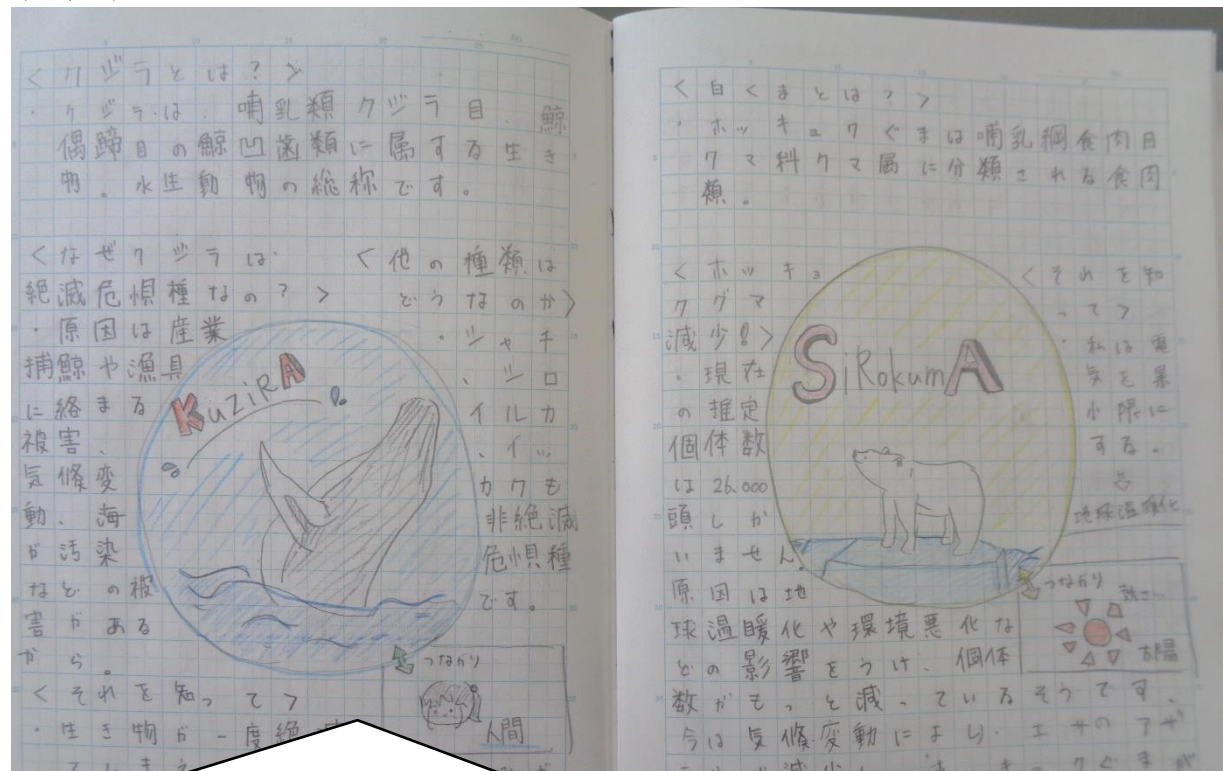 <クジラとは?>
・クジラは、哺乳類クジラ目、鯨
偶蹄目の鯨凹歯類に属する生き
物。水生動物の総称です。
<なぜクジラは
絶滅危惧種なの?>
・原因は産業
捕鯨や漁具
に絡まる
被害、
気條変
動、海
が汚染
などの被
害がある
から。
<他の種類は
どうなのか>
・シャチ
、シロ
イルカ
、イッ
カクも
非絶滅
危惧種
です。
KuZiRA
つながり
人間
<それを知って>
・生き物が一度絶
<白くまとは?>
・ホッキョクぐまは哺乳綱食肉目
クマ科クマ属に分類される食肉
類。
<ホッキョ
クグマ
減少!>
・現在
の推定
個体数
は26.000
頭しか
いません。
原因は地
球温暖化や環境悪化な
どの影響をうけ、個体
数がもっと減っているそうです。
今は気條変動により、エサのアザ
SiRokumA
<それを知
って>
・私は電
気を最
小限に
する。
地球温暖化
つながり
熱さ
太陽